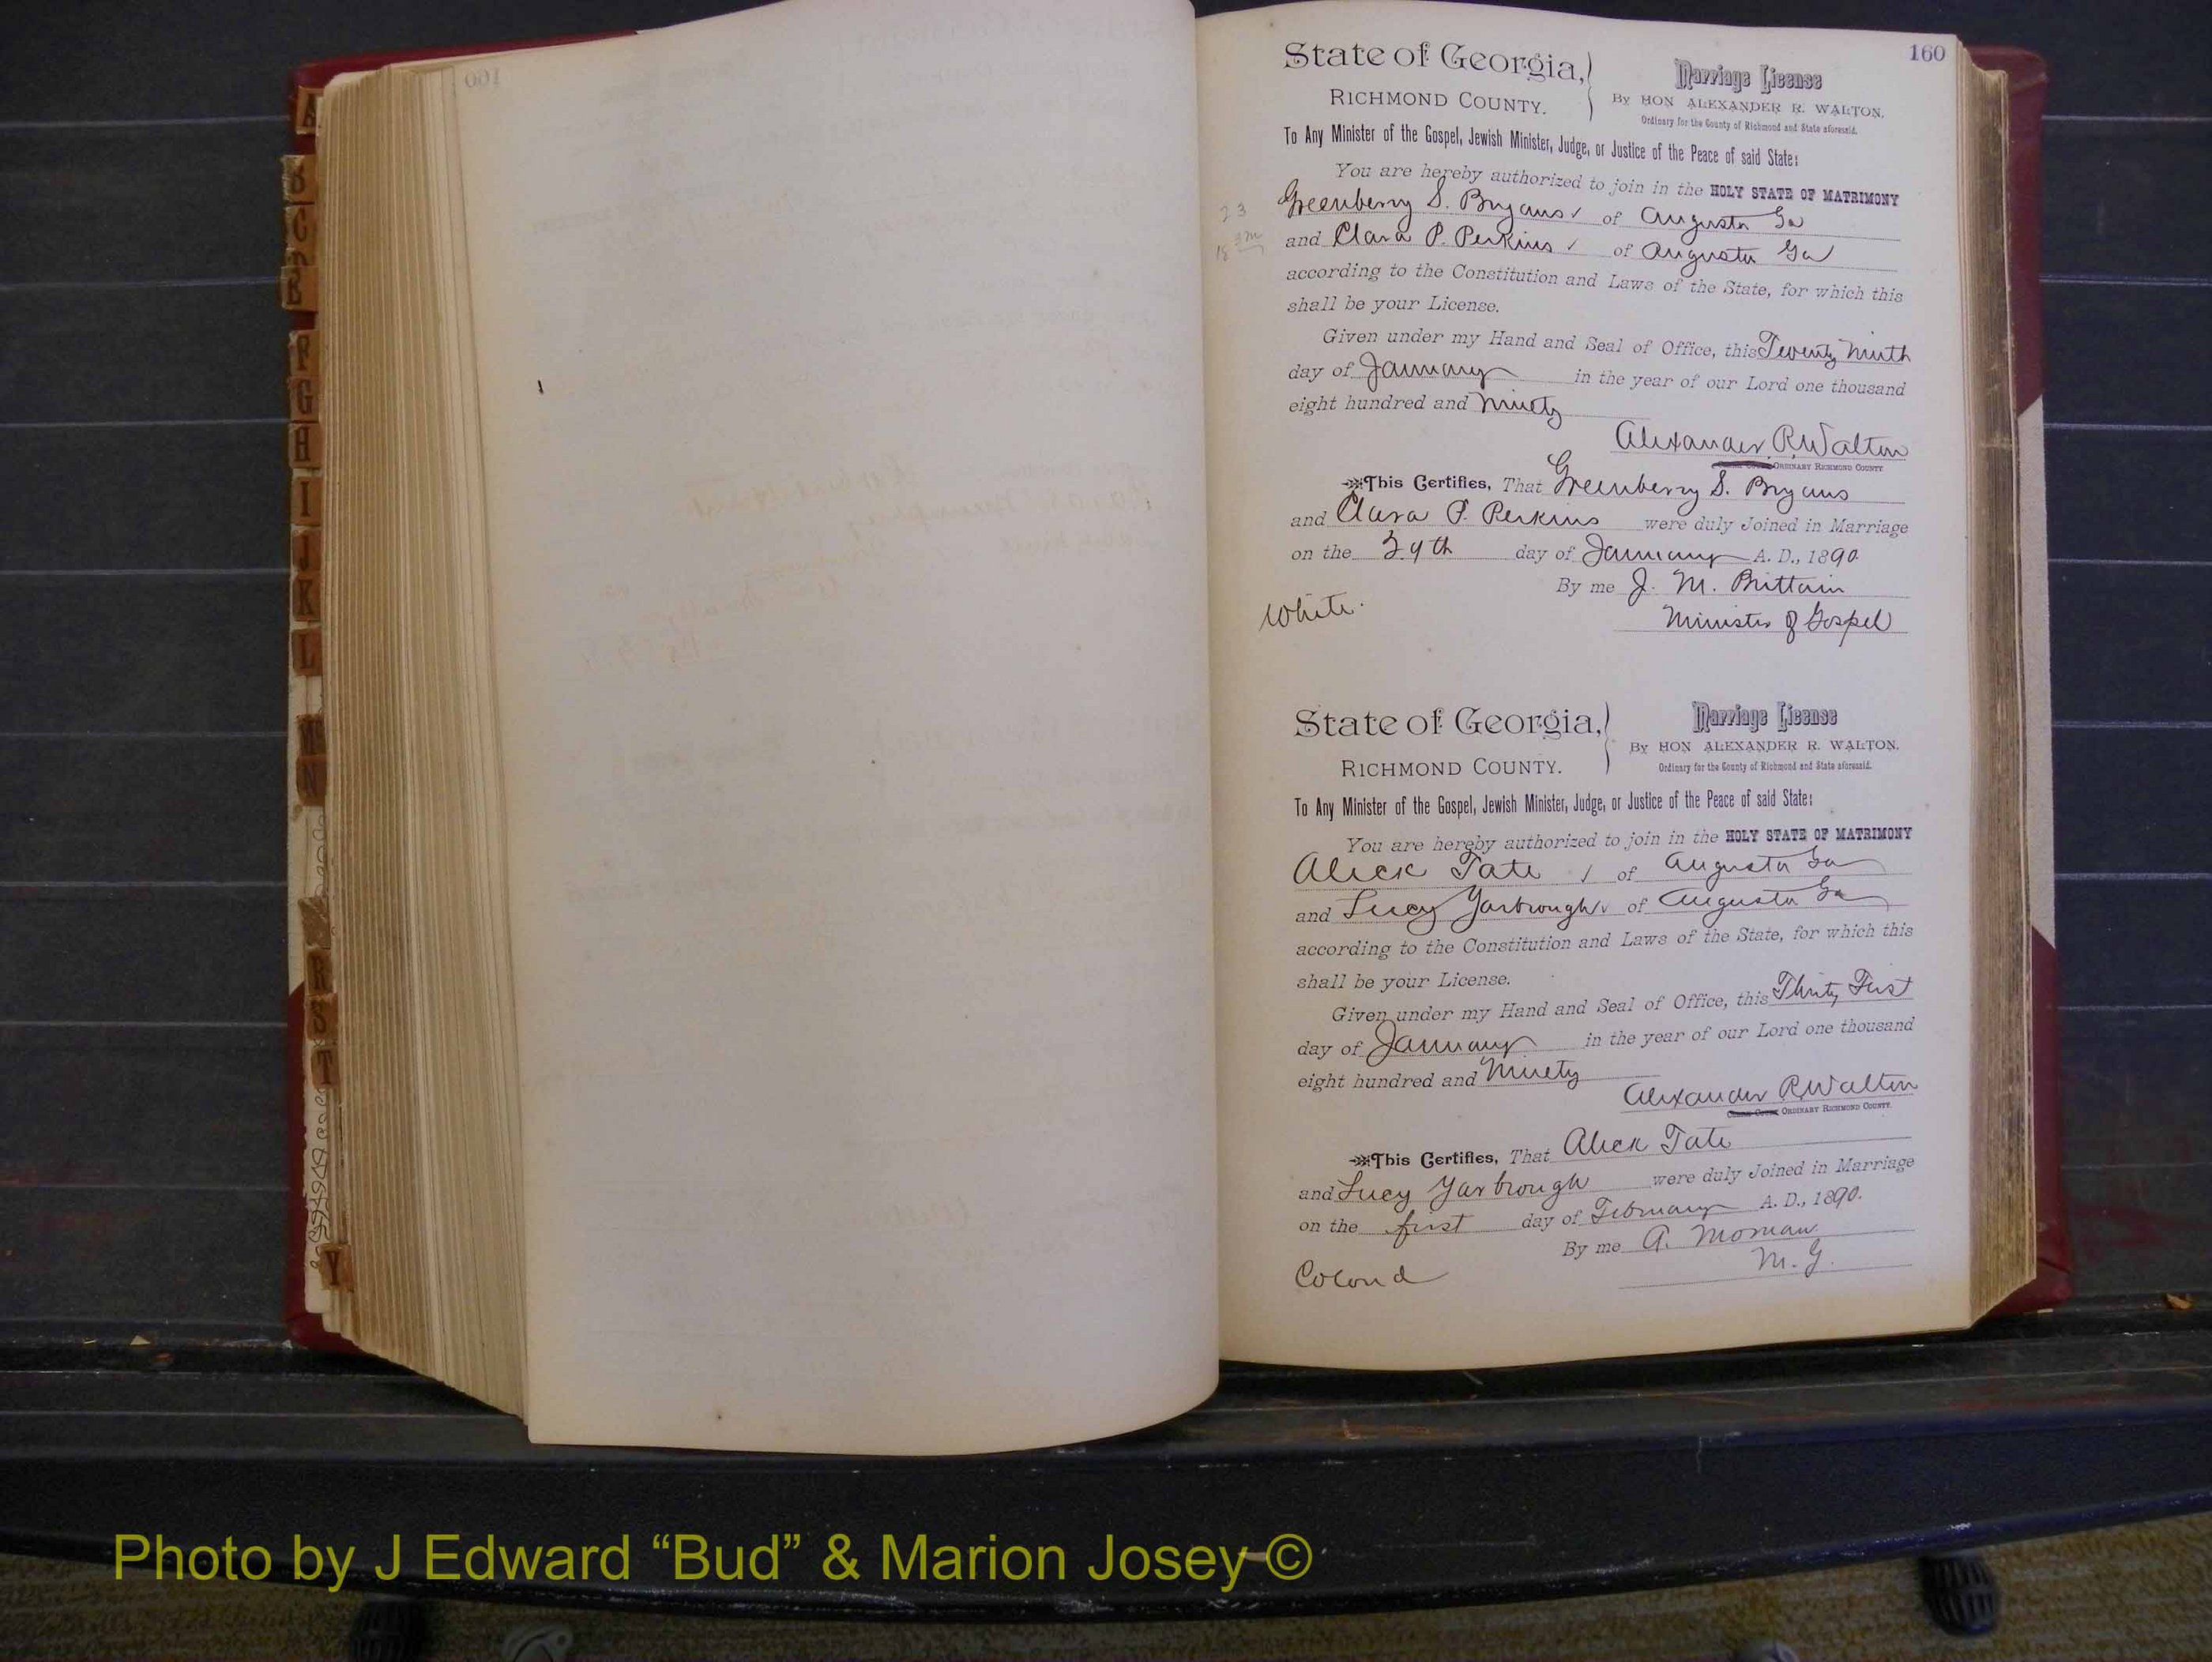 160
State of Georgia,
RICHMOND COUNTY.
Marriage License
By HON ALEXANDER R. WALTON,
Ordinary for the County of Richmond and State aforesaid.
To Any Minister of the Gospel, Jewish Minister, Judge, or Justice of the Peace of said State:
You are hereby authorized to join in the HOLY STATE OF MATRIMONY
Greenberry S. Bryans of Augusta Ga
23
and Clara P. Perkins of Augusta Ga
18
according to the Constitution and Laws of the State, for which this
shall be your License.
Given under my Hand and Seal of Office, this Twenty Ninth
day of January in the year of our Lord one thousand
eight hundred and Ninety
Alexander R. Walton
ORDINARY RICHMOND COUNTY
This Certifies, That Greenberry S. Bryans
and Clara P. Perkins were duly Joined in Marriage
on the 29th day of January A. D., 1890
By me J. M. Brittain
White.
Minister of Gospel
State of Georgia,
RICHMOND COUNTY.
Marriage License
By HON ALEXANDER R. WALTON,
Ordinary for the County of Richmond and State aforesaid.
To Any Minister of the Gospel, Jewish Minister, Judge, or Justice of the Peace of said State:
You are hereby authorized to join in the HOLY STATE OF MATRIMONY
Aleck Tate of Augusta Ga
and Lucy Yarbrough of Augusta Ga
according to the Constitution and Laws of the State, for which this
shall be your License.
Given under my Hand and Seal of Office, this Thirty First
day of January in the year of our Lord one thousand
eight hundred and Ninety
Alexander R. Walton
ORDINARY RICHMOND COUNTY.
This Certifies, That Aleck Tate
and Lucy Yarbrough were duly Joined in Marriage
on the first day of February A. D., 1890.
By me A.
M. G.
Colord
B
C
F
G
H
I
J
K
L
Mc
N
R
S
T
Y
Photo by J Edward “Bud” & Marion Josey ©